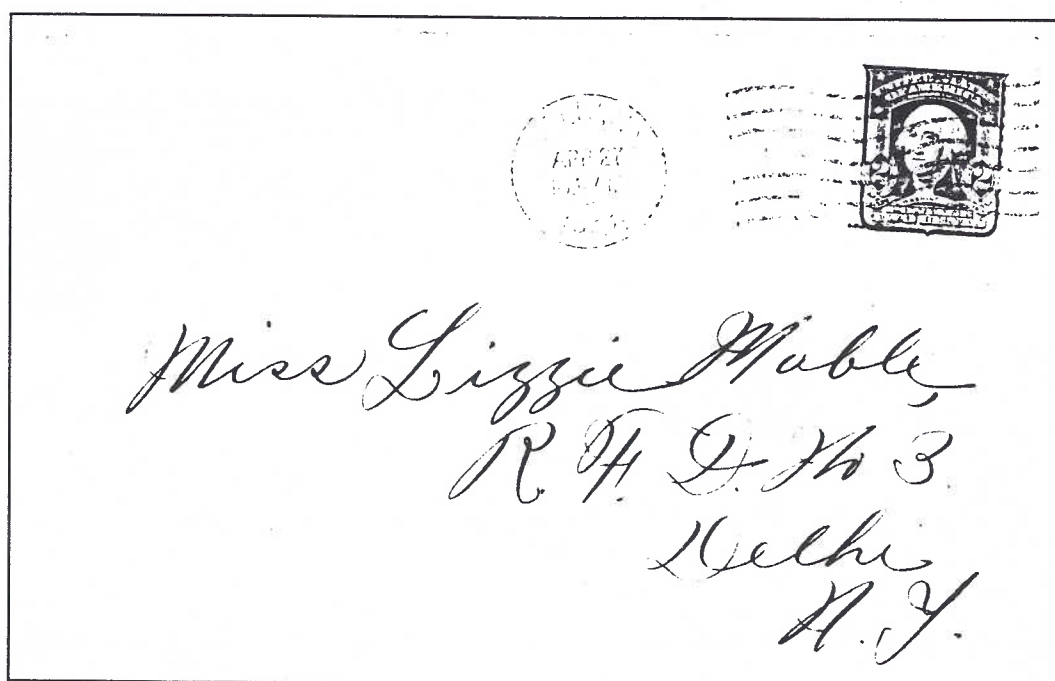 APR 27
2 2
Miss Lizzie Mable,
R. F. D. No 3.
Delhi
N. Y.